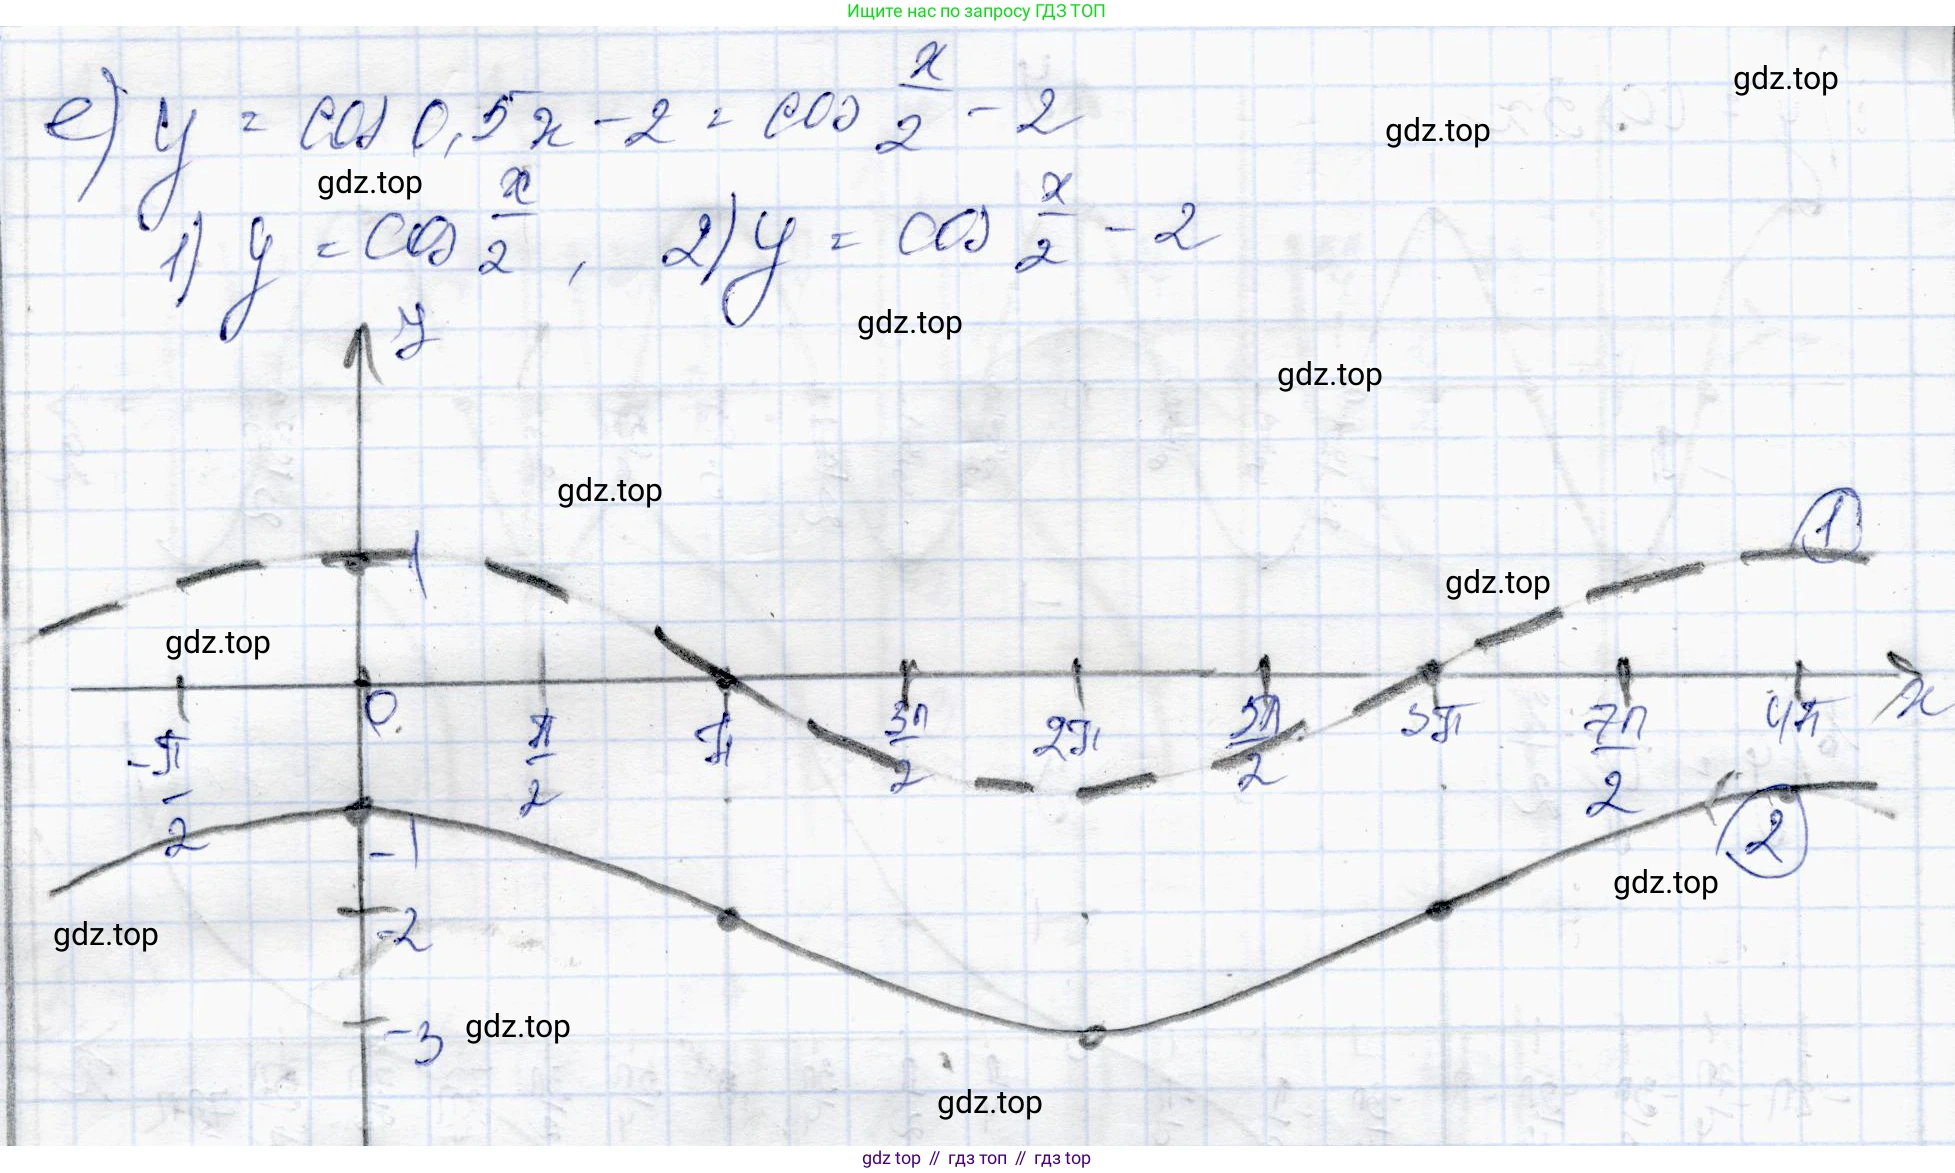 Ищите нас по запросу ГДЗ ТОП
е) y = cos 0,5x - 2 = cos x/2 - 2
gdz.top
gdz.top
gdz.top
1) y = cos x/2 , 2) y = cos x/2 - 2
y
gdz.top
gdz.top
gdz.top
1
1
gdz.top
gdz.top
-π/2 0 π/2 π 3π/2 2π 5π/2 3π 7π/2 4π x
-1
2
gdz.top
-2
gdz.top
-3
gdz.top
gdz.top
gdz top // гдз топ // гдз top